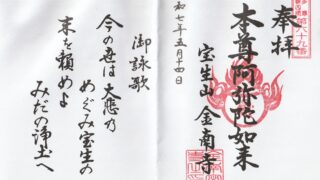 奉拝
第六十九番
本尊阿弥陀如来
宝生山 金南寺
和七年五月十四日
御詠歌
今の世は大悲の
めぐみ宝生の
末を頼めよ
みだの浄土へ